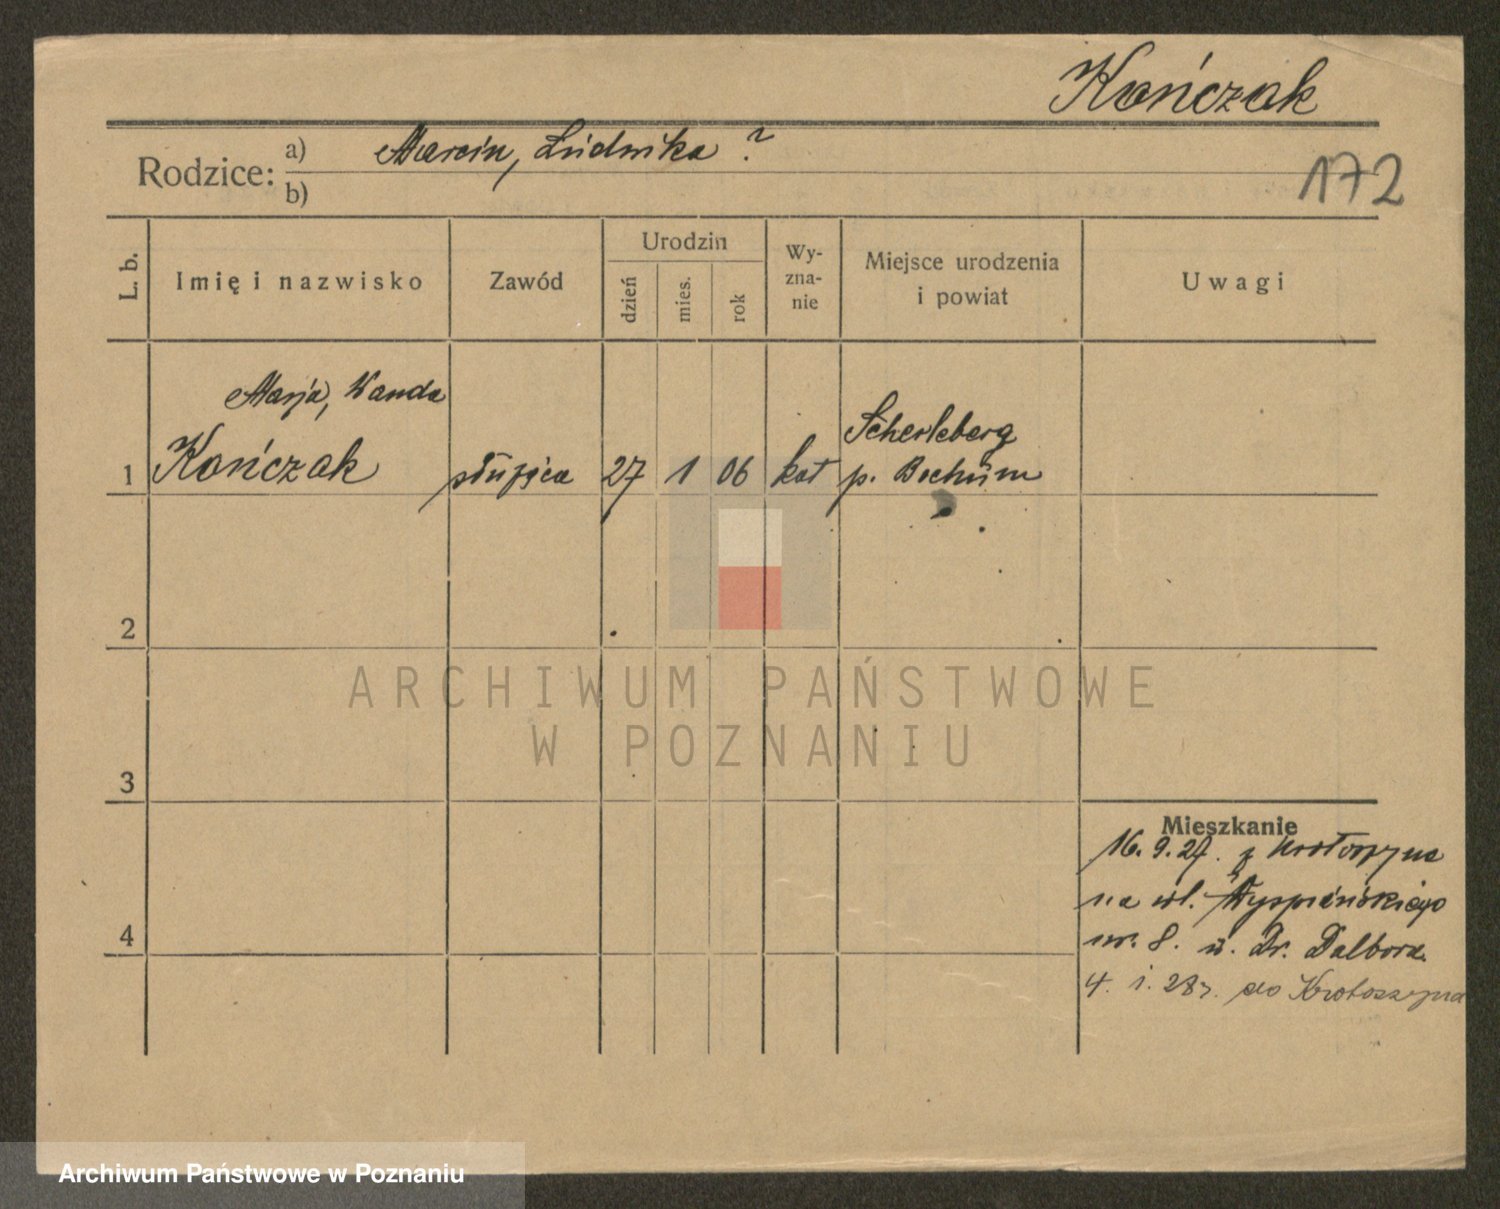 Kończak
Rodzice: a) Marcin, Ludwika ?
b)
172
L. b.
Imię i nazwisko
Zawód
Urodzin
dzień
mies.
rok
Wy-
zna-
nie
Miejsce urodzenia
i powiat
Uwagi
Marja, Wanda
1 Kończak służąca 27 1 06 kat
Scherleberg
p. Bochum
2
3
4
Mieszkanie
16. 9. 27. z Krotoszyna
na ul. Wyspiańskiego
nr. 8. u. Dr. Dalbora.
4. 1. 28 r. do Krotoszyna
ARCHIWUM PAŃSTWOWE
W POZNANIU
Archiwum Państwowe w Poznaniu